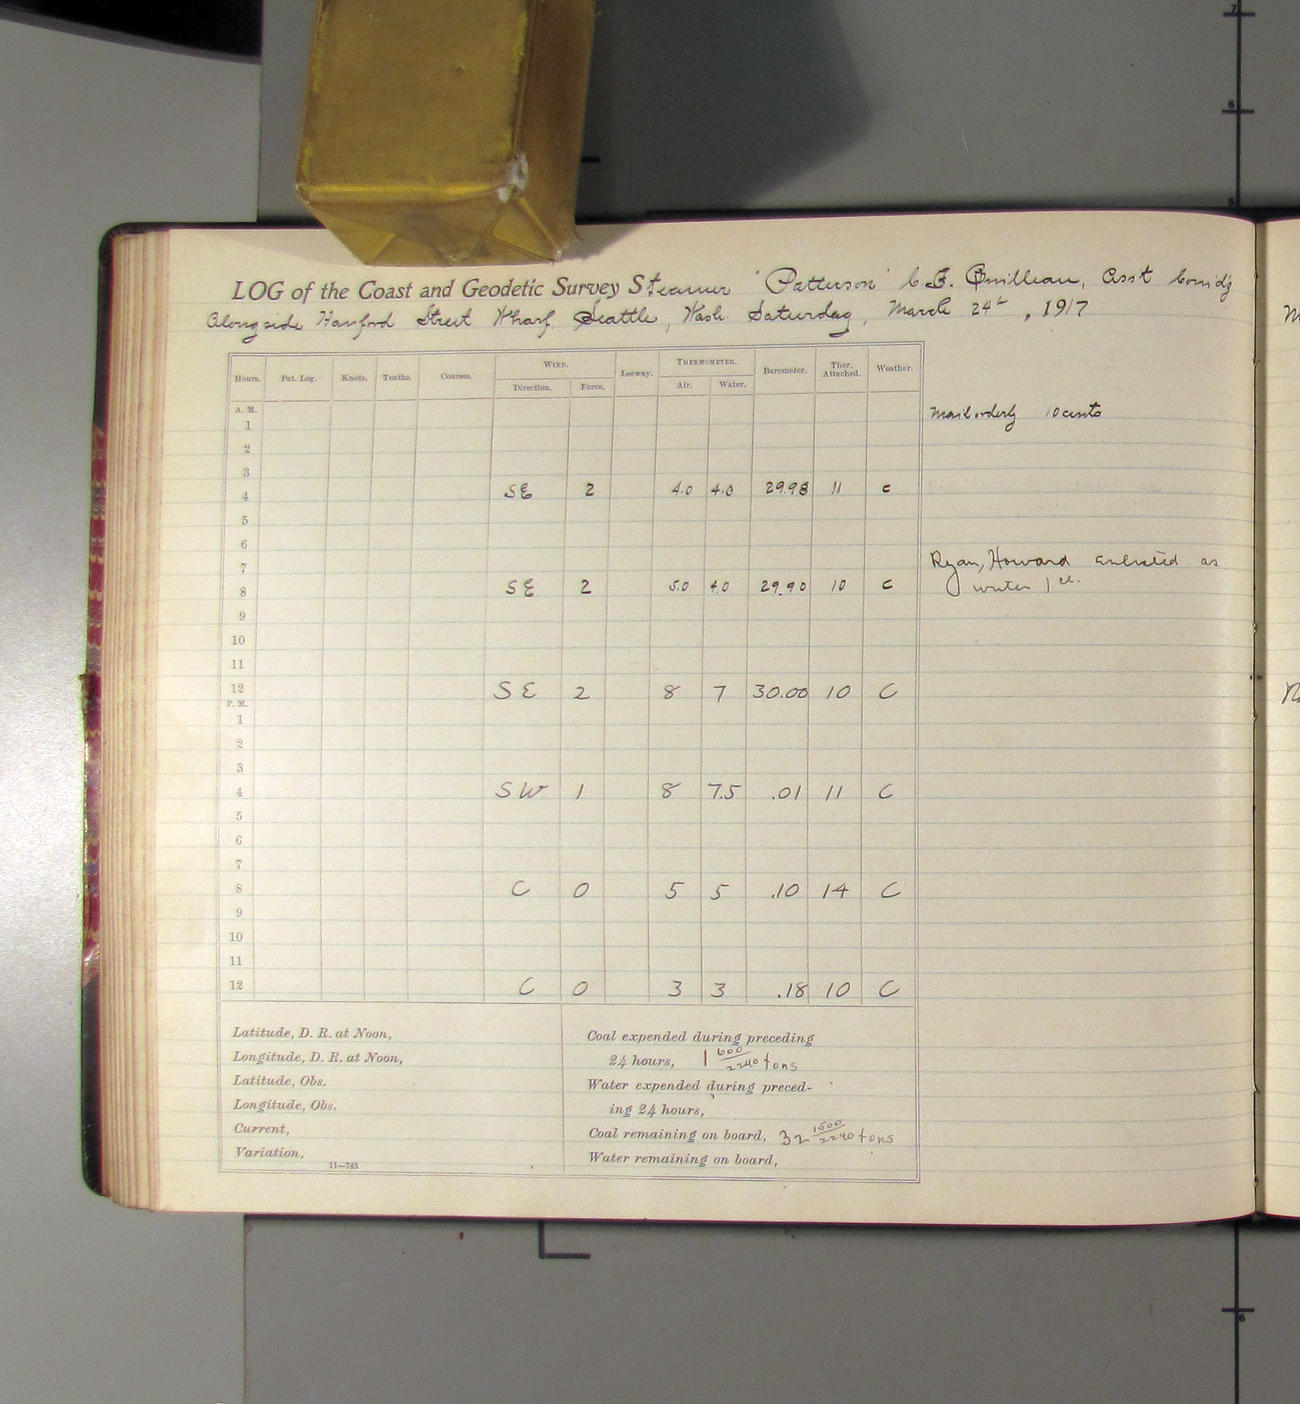 LOG of the Coast and Geodetic Survey Steamer "Patterson" C. G. Quillian, Asst Com'd'g
Alongside Hanford Street Wharf, Seattle, Wash. Saturday, March 24th, 1917
Hours. Pat. Log. Knots. Tenths. Courses. WIND. Direction. Force. Leeway. THERMOMETER. Air. Water. Barometer. Ther. Attached. Weather.
A. M.
1 Mail orderly 10 cents
2
3
4 SE 2 4.0 4.0 29.98 11 c
5
6
7 Ryan, Howard enlisted as
8 SE 2 5.0 4.0 29.90 10 c writer 1 cl.
9
10
11
12 SE 2 8 7 30.00 10 C
P. M.
1
2
3
4 SW 1 8 7.5 .01 11 C
5
6
7
8 C 0 5 5 .10 14 C
9
10
11
12 C 0 3 3 .18 10 C
Latitude, D. R. at Noon,
Longitude, D. R. at Noon,
Latitude, Obs.
Longitude, Obs.
Current,
Variation,
11—743
Coal expended during preceding
24 hours, 1 600/2240 tons
Water expended during preced-
ing 24 hours,
Coal remaining on board, 32 1500/2240 tons
Water remaining on board,
7
6
5
6